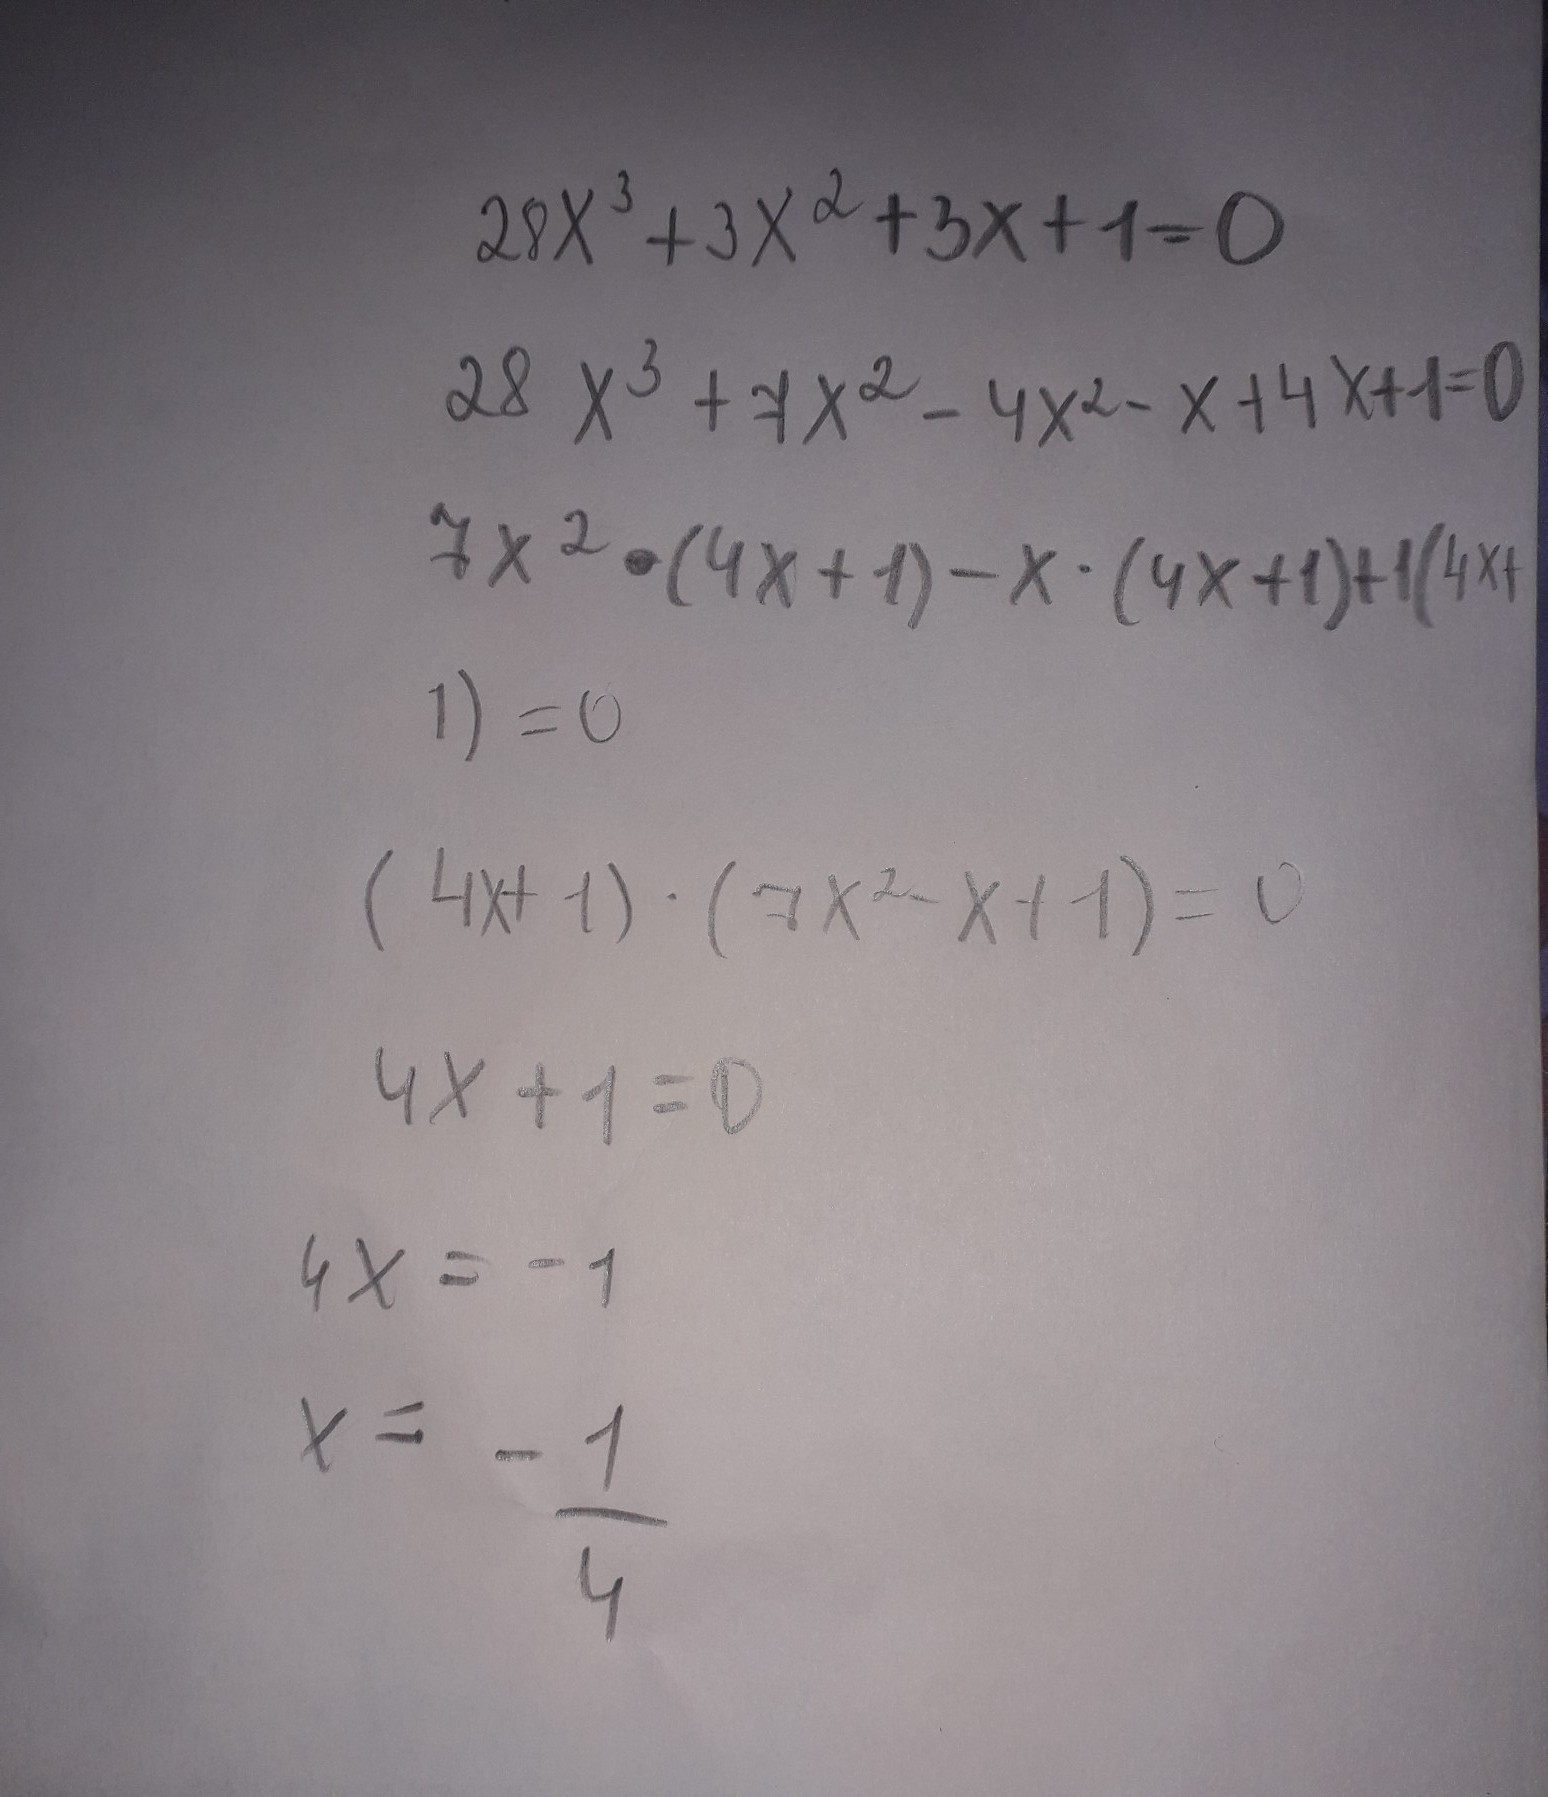 28x³+3x²+3x+1=0
28x³+7x²-4x²-x+4x+1=0
7x²•(4x+1)-x·(4x+1)+1(4x+
1)=0
(4x+1)·(7x²-x+1)=0
4x+1=0
4x=-1
x=-1/4